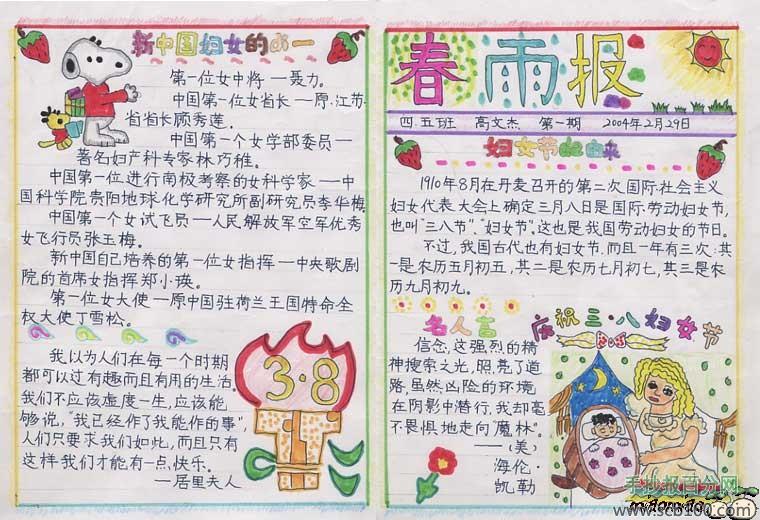 新中国妇女的第一
第一位女中将一聂力。
中国第一位女省长一原·江苏
省省长顾秀莲。
中国第一个女学部委员一
著名妇产科专家林巧稚。
中国第一位进行南极考察的女科学家一中
国科学院贵阳地球化学研究所副研究员李华梅
中国第一个女试飞员一人民解放军空军优秀
女飞行员张玉梅。
新中国自己培养的第一位女指挥一中央歌剧
院的首席女指挥郑小瑛。
第一位女大使一原中国驻荷兰王国特命全
权大使丁雪松。
我以为人们在每一个时期
都可以过有趣而且有用的生活.
我们不应该虚度一生,应该能
够说,"我已经作了我能作的事",
人们只要求我们如此,而且只有
这样我们才能有一点快乐。
一居里夫人
3·8
春雨报
四.五班 高文杰 第一期 2004年2月29日
妇女节的由来
1910年8月在丹麦召开的第二次国际社会主义
妇女代表大会上确定三月八日是国际劳动妇女节,
也叫"三八节"、"妇女节"。这也是我国劳动妇女的节日。
不过,我国古代也有妇女节.而且一年有三次:其
一是农历五月初五,其二是农历七月初七,其三是农
历九月初九。
名人言
信念,这强烈的精
神搜索之光,照亮了道
路,虽然凶险的环境
在阴影中潜行,我却毫
不畏惧地走向"魔林"。
一(美)
海伦·
凯勒
庆祝三·八妇女节
手抄报百分网
www.scb100.com